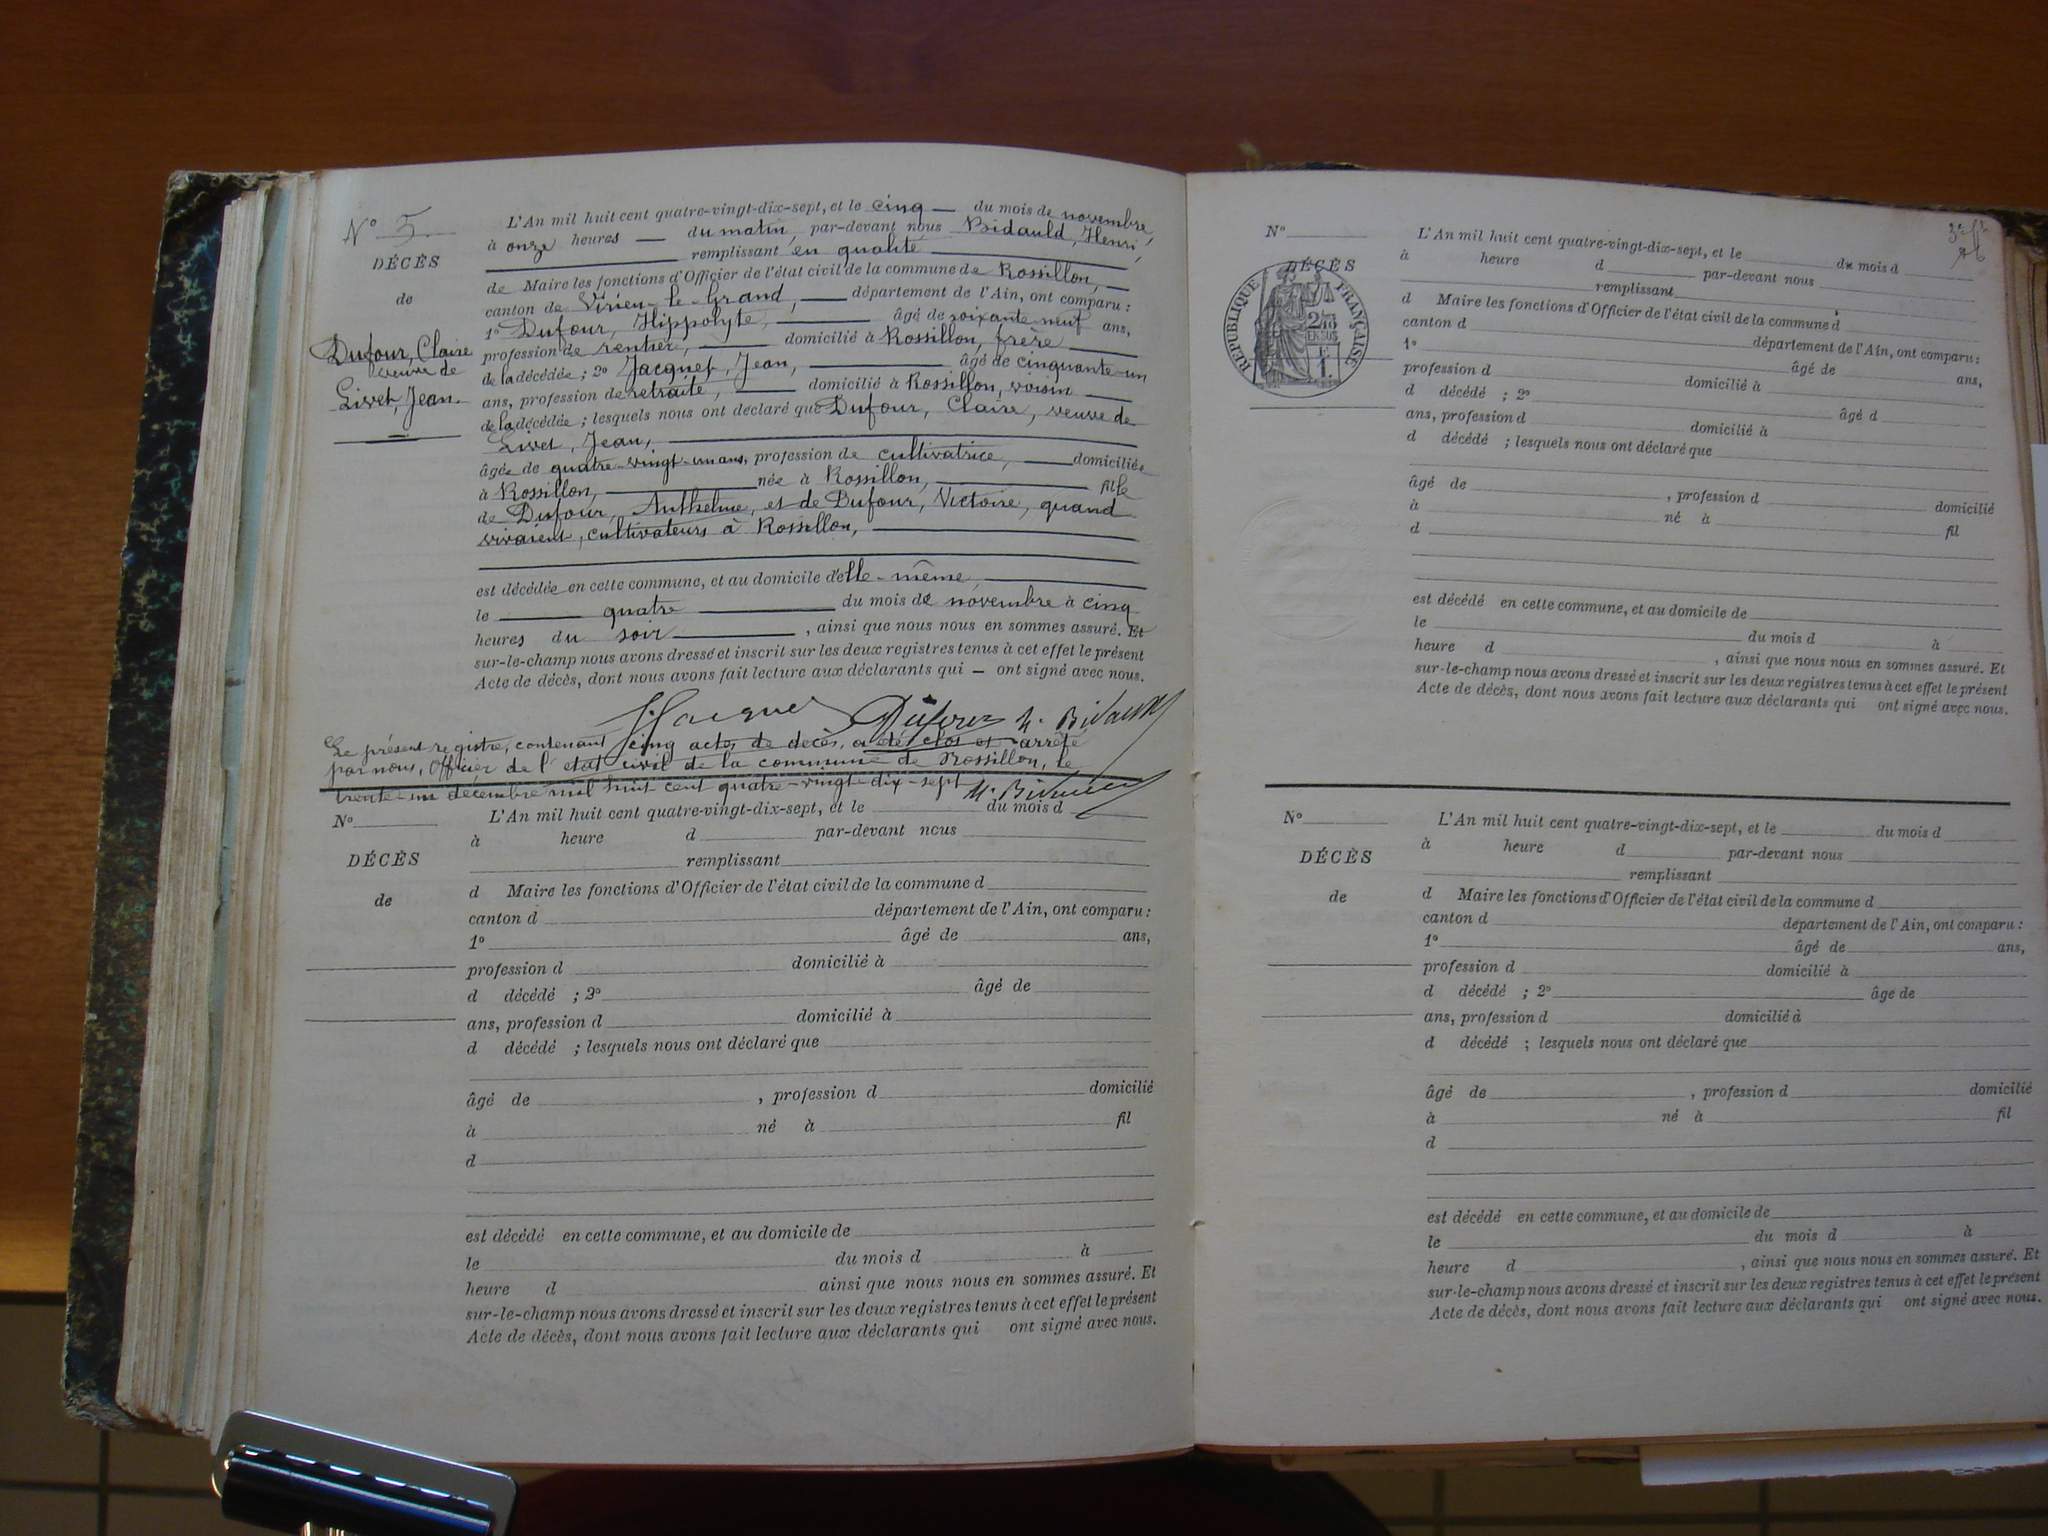 N° 5.
DÉCÈS
de
Dufour, Claire
veuve de
Livet, Jean.
L'An mil huit cent quatre-vingt-dix-sept, et le cinq du mois de novembre,
à onze heures du matin, par-devant nous Bidauld, Henri,
remplissant en qualité
de Maire les fonctions d'Officier de l'état civil de la commune de Rossillon,
canton de Virieu-le-Grand, département de l'Ain, ont comparu :
1° Dufour, Hippolyte, âgé de soixante neuf ans,
profession de rentier, domicilié à Rossillon, frère
de la décédée ; 2° Jacquet, Jean, âgé de cinquante-un
ans, profession de retraité, domicilié à Rossillon, voisin
de la décédée ; lesquels nous ont déclaré que Dufour, Claire, veuve de
Livet, Jean,
âgée de quatre-vingt-un ans, profession de cultivatrice, domiciliée
à Rossillon, née à Rossillon, fille
de Dufour, Anthelme, et de Dufour, Victoire, quand
vivaient, cultivateurs à Rossillon,
est décédée en cette commune, et au domicile d'elle-même,
le quatre du mois de novembre à cinq
heures du soir, ainsi que nous nous en sommes assuré. Et
sur-le-champ nous avons dressé et inscrit sur les deux registres tenus à cet effet le présent
Acte de décès, dont nous avons fait lecture aux déclarants qui – ont signé avec nous.
J. Jacquet Dufour H. Bidauld
Le présent registre, contenant cinq actes de décès, a été clos et arrêté
par nous, Officier de l'état civil de la commune de Rossillon, le
trente-un décembre mil huit cent quatre-vingt-dix-sept H. Bidauld
N°
DÉCÈS
de
L'An mil huit cent quatre-vingt-dix-sept, et le du mois d
à heure d par-devant nous
remplissant
d Maire les fonctions d'Officier de l'état civil de la commune d
canton d département de l'Ain, ont comparu :
1° âgé de ans,
profession d domicilié à
d décédé ; 2° âgé de
ans, profession d domicilié à
d décédé ; lesquels nous ont déclaré que
âgé de , profession d domicilié
à né à fil
d
est décédé en cette commune, et au domicile de
le du mois d à
heure d ainsi que nous nous en sommes assuré. Et
sur-le-champ nous avons dressé et inscrit sur les deux registres tenus à cet effet le présent
Acte de décès, dont nous avons fait lecture aux déclarants qui ont signé avec nous.
N°
DÉCÈS
RÉPUBLIQUE FRANÇAISE
L'An mil huit cent quatre-vingt-dix-sept, et le du mois d
à heure d par-devant nous
remplissant
d Maire les fonctions d'Officier de l'état civil de la commune d
canton d département de l'Ain, ont comparu :
1° âgé de ans,
profession d domicilié à
d décédé ; 2° âgé d
ans, profession d domicilié à
d décédé ; lesquels nous ont déclaré que
âgé de , profession d domicilié
à né à fil
d
est décédé en cette commune, et au domicile de
le du mois d à
heure d , ainsi que nous nous en sommes assuré. Et
sur-le-champ nous avons dressé et inscrit sur les deux registres tenus à cet effet le présent
Acte de décès, dont nous avons fait lecture aux déclarants qui ont signé avec nous.
N°
DÉCÈS
de
L'An mil huit cent quatre-vingt-dix-sept, et le du mois d
à heure d par-devant nous
remplissant
d Maire les fonctions d'Officier de l'état civil de la commune d
canton d département de l'Ain, ont comparu :
1° âgé de ans,
profession d domicilié à
d décédé ; 2° âge de
ans, profession d domicilié à
d décédé ; lesquels nous ont déclaré que
âgé de , profession d domicilié
à né à fil
d
est décédé en cette commune, et au domicile de
le du mois d à
heure d , ainsi que nous nous en sommes assuré. Et
sur-le-champ nous avons dressé et inscrit sur les deux registres tenus à cet effet le présent
Acte de décès, dont nous avons fait lecture aux déclarants qui ont signé avec nous.